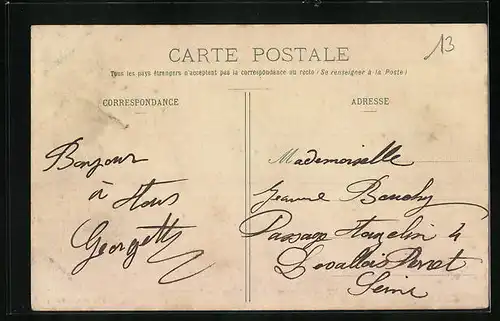 13
CARTE POSTALE
Tous les pays étrangers n'acceptent pas la correspondance au recto (Se renseigner à la Poste)
CORRESPONDANCE
ADRESSE
Bonjour
à tous
Georgette
Mademoiselle
Jeanne
Passage 4
Levallois Perret
Seine